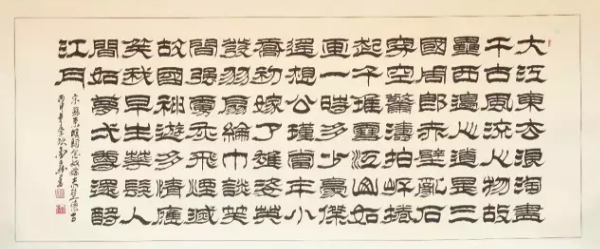 大江東去浪淘盡
千古風流人物故
壘西邊人道是三
國周郎赤壁亂石
穿空驚濤拍岸捲
起千堆雪江山如
畫一時多少豪傑
遙想公瑾當年小
喬初嫁了雄姿英
發羽扇綸巾談笑
間強虜灰飛煙滅
故國神遊多情應
笑我早生華髮人
間如夢弌尊還酹
江月
宋蘇東坡詞念奴嬌赤壁懷古
丙申年